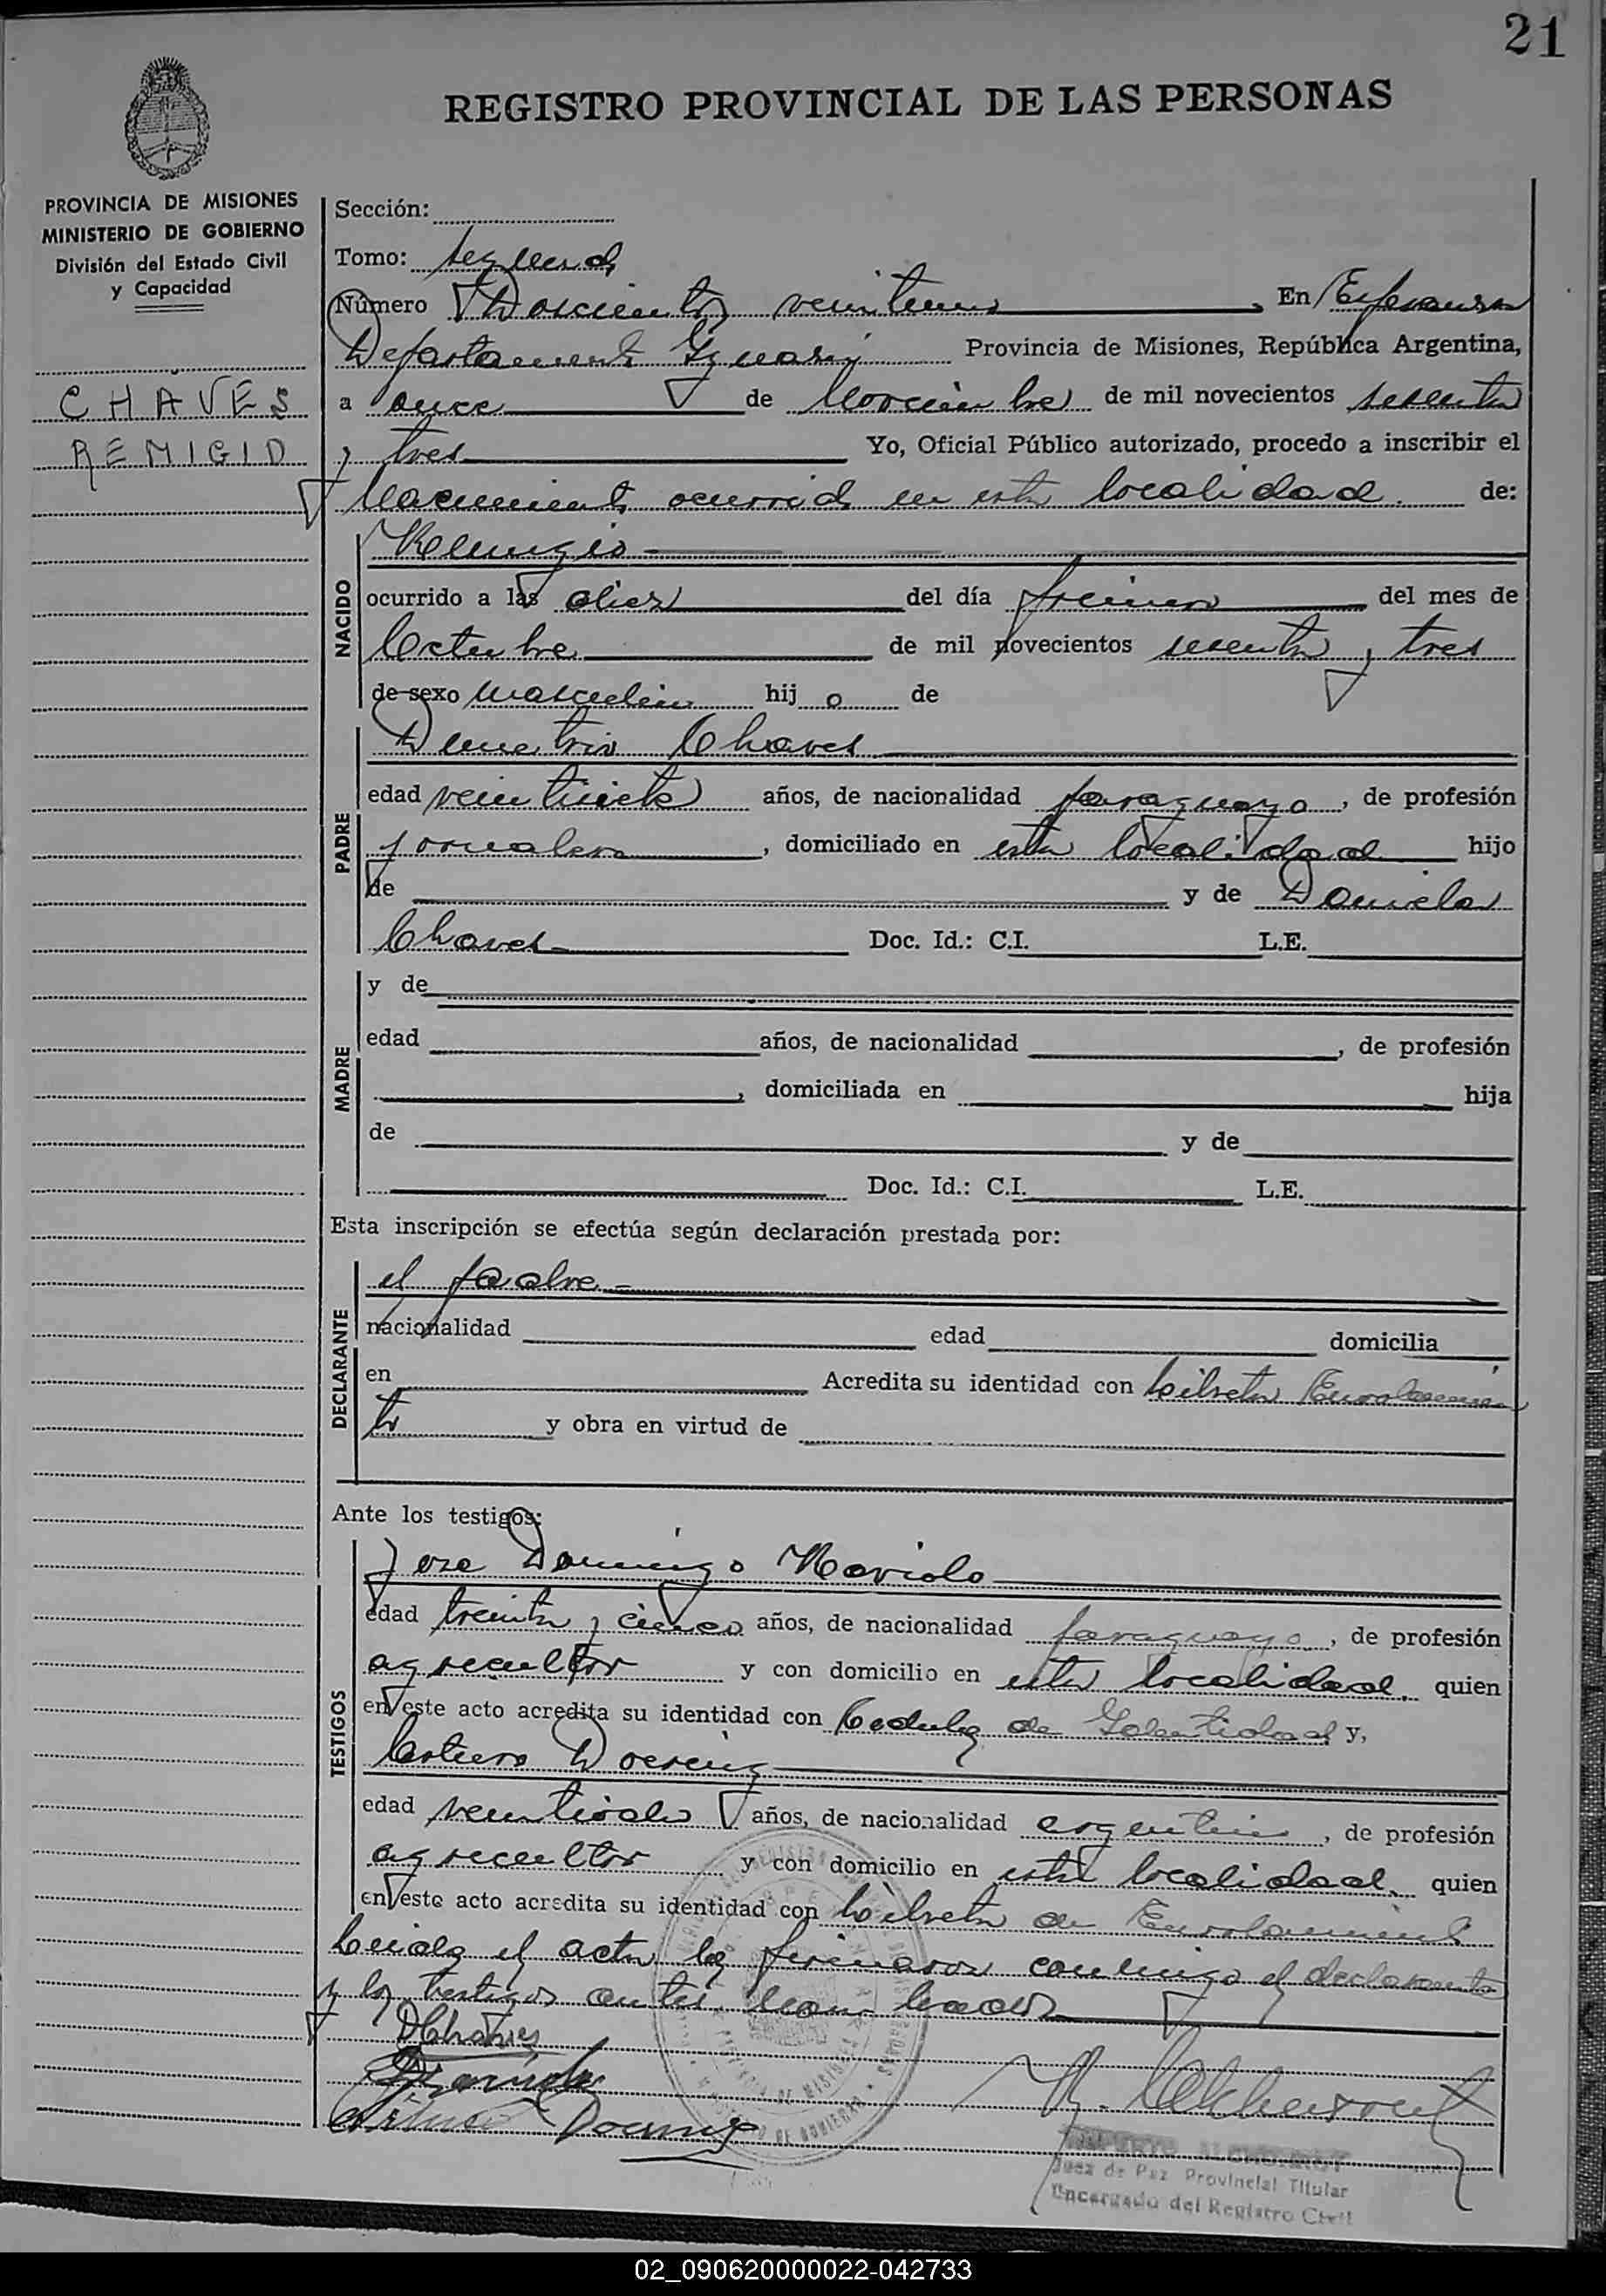 21
REGISTRO PROVINCIAL DE LAS PERSONAS
PROVINCIA DE MISIONES
MINISTERIO DE GOBIERNO
División del Estado Civil
y Capacidad
CHAVES
REMIGIO
Sección:
Tomo: segundo
Número Doscientos veintiuno En Esperanza
Departamento Iguazú Provincia de Misiones, República Argentina,
a once de Noviembre de mil novecientos sesenta
y tres Yo, Oficial Público autorizado, procedo a inscribir el
Nacimiento ocurrido en esta localidad. de:
NACIDO
Remigio
ocurrido a las diez del día primero del mes de
Octubre de mil novecientos sesenta y tres
de sexo masculino hij o de
PADRE
Demetrio Chaves
edad veintisiete años, de nacionalidad paraguayo, de profesión
jornalero, domiciliado en esta localidad hijo
de y de Daniela
Chaves Doc. Id.: C.I. L.E.
MADRE
y de
edad años, de nacionalidad , de profesión
, domiciliada en hija
de y de
Doc. Id.: C.I. L.E.
Esta inscripción se efectúa según declaración prestada por:
DECLARANTE
el padre
nacionalidad edad domicilia
en Acredita su identidad con Libreta Enrolamien
to y obra en virtud de
Ante los testigos:
TESTIGOS
Jose Domingo
edad treinta y cinco años, de nacionalidad paraguayo, de profesión
agricultor y con domicilio en esta localidad. quien
en este acto acredita su identidad con Cedula de Identidad y,
Arturo Doering
edad veintidos años, de nacionalidad argentino, de profesión
agricultor y con domicilio en esta localidad. quien
en este acto acredita su identidad con Libreta de Enrolamiento
Leida el acta la firmaron conmigo el declarante
y los testigos antes nombrados
DChaves
Arturo Doering
Juez de Paz Provincial Titular
Encargado del Registro Civil
02_090620000022-042733